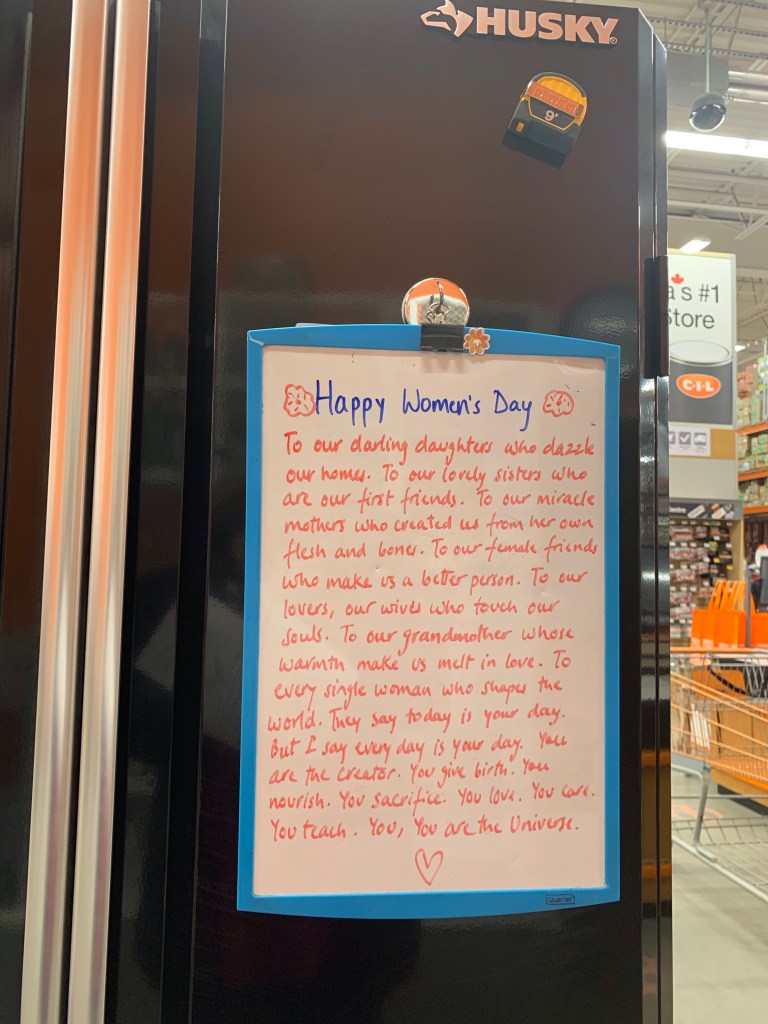 HUSKY
9'
a's #1
Store
C·I·L
Happy Women's Day
To our darling daughters who dazzle
our homes. To our lovely sisters who
are our first friends. To our miracle
mothers who created us from her own
flesh and bones. To our female friends
who make us a better person. To our
lovers, our wives who touch our
souls. To our grandmother whose
warmth make us melt in love. To
every single woman who shapes the
world. They say today is your day.
But I say every day is your day. You
are the creator. You give birth. You
nourish. You sacrifice. You love. You care.
You teach. You, You are the Universe.
Quartet